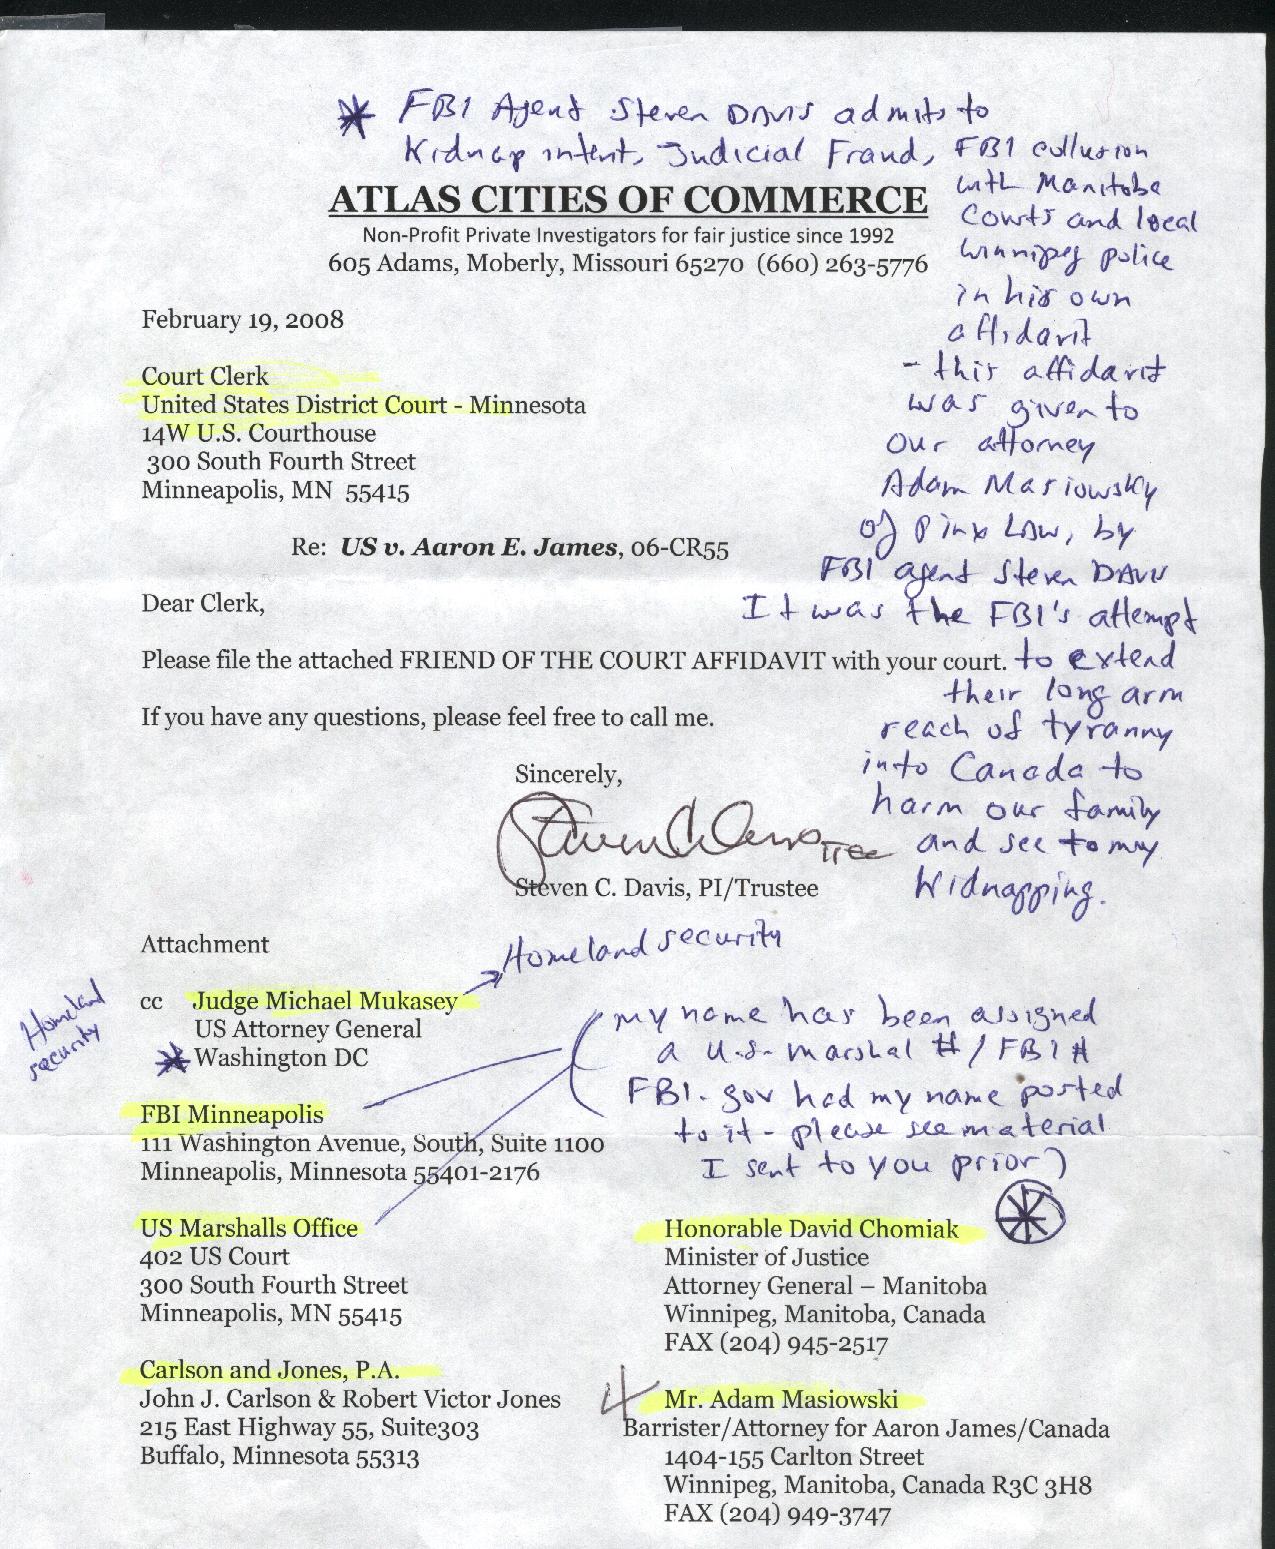 * FBI Agent Steven DAVIS admits to
Kidnap intent, Judicial Fraud, FBI collusion
with Manitoba
Courts and local
Winnipeg police
in his own
affidavit
- this affidavit
was given to
our attorney
Adam Masiowsky
of Pinx Law, by
FBI agent Steven DAVIS
It was the FBI's attempt
to extend
their long arm
reach of tyranny
into Canada to
harm our family
and see to my
Kidnapping.
ATLAS CITIES OF COMMERCE
Non-Profit Private Investigators for fair justice since 1992
605 Adams, Moberly, Missouri 65270 (660) 263-5776
February 19, 2008
Court Clerk
United States District Court - Minnesota
14W U.S. Courthouse
300 South Fourth Street
Minneapolis, MN 55415
Re: US v. Aaron E. James, 06-CR55
Dear Clerk,
Please file the attached FRIEND OF THE COURT AFFIDAVIT with your court.
If you have any questions, please feel free to call me.
Sincerely,
Steven C Davis TTEE
Steven C. Davis, PI/Trustee
Attachment
Homeland security
Homeland
security
cc Judge Michael Mukasey
US Attorney General
* Washington DC
(my name has been assigned
a U.S. marshal # / FBI #
FBI.gov had my name posted
to it - please see material
I sent to you prior)
FBI Minneapolis
111 Washington Avenue, South, Suite 1100
Minneapolis, Minnesota 55401-2176
US Marshalls Office
402 US Court
300 South Fourth Street
Minneapolis, MN 55415
Carlson and Jones, P.A.
John J. Carlson & Robert Victor Jones
215 East Highway 55, Suite303
Buffalo, Minnesota 55313
Honorable David Chomiak *
Minister of Justice
Attorney General – Manitoba
Winnipeg, Manitoba, Canada
FAX (204) 945-2517
4 Mr. Adam Masiowski
Barrister/Attorney for Aaron James/Canada
1404-155 Carlton Street
Winnipeg, Manitoba, Canada R3C 3H8
FAX (204) 949-3747